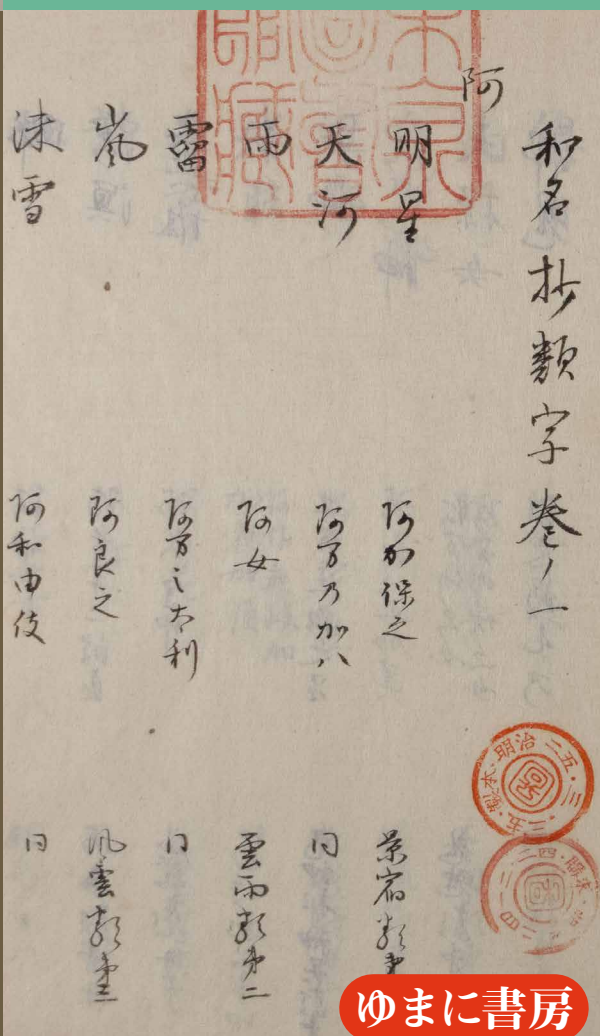 和名抄類字巻ノ一
阿
明星 阿加保之 景宿類第
天河 阿万乃加八 同
雨 阿女 雲雨類第二
霤 阿万之太利 同
嵐 阿良之 風雲類第二
沫雪 阿和由伎 同
明治二五・三
ゆまに書房